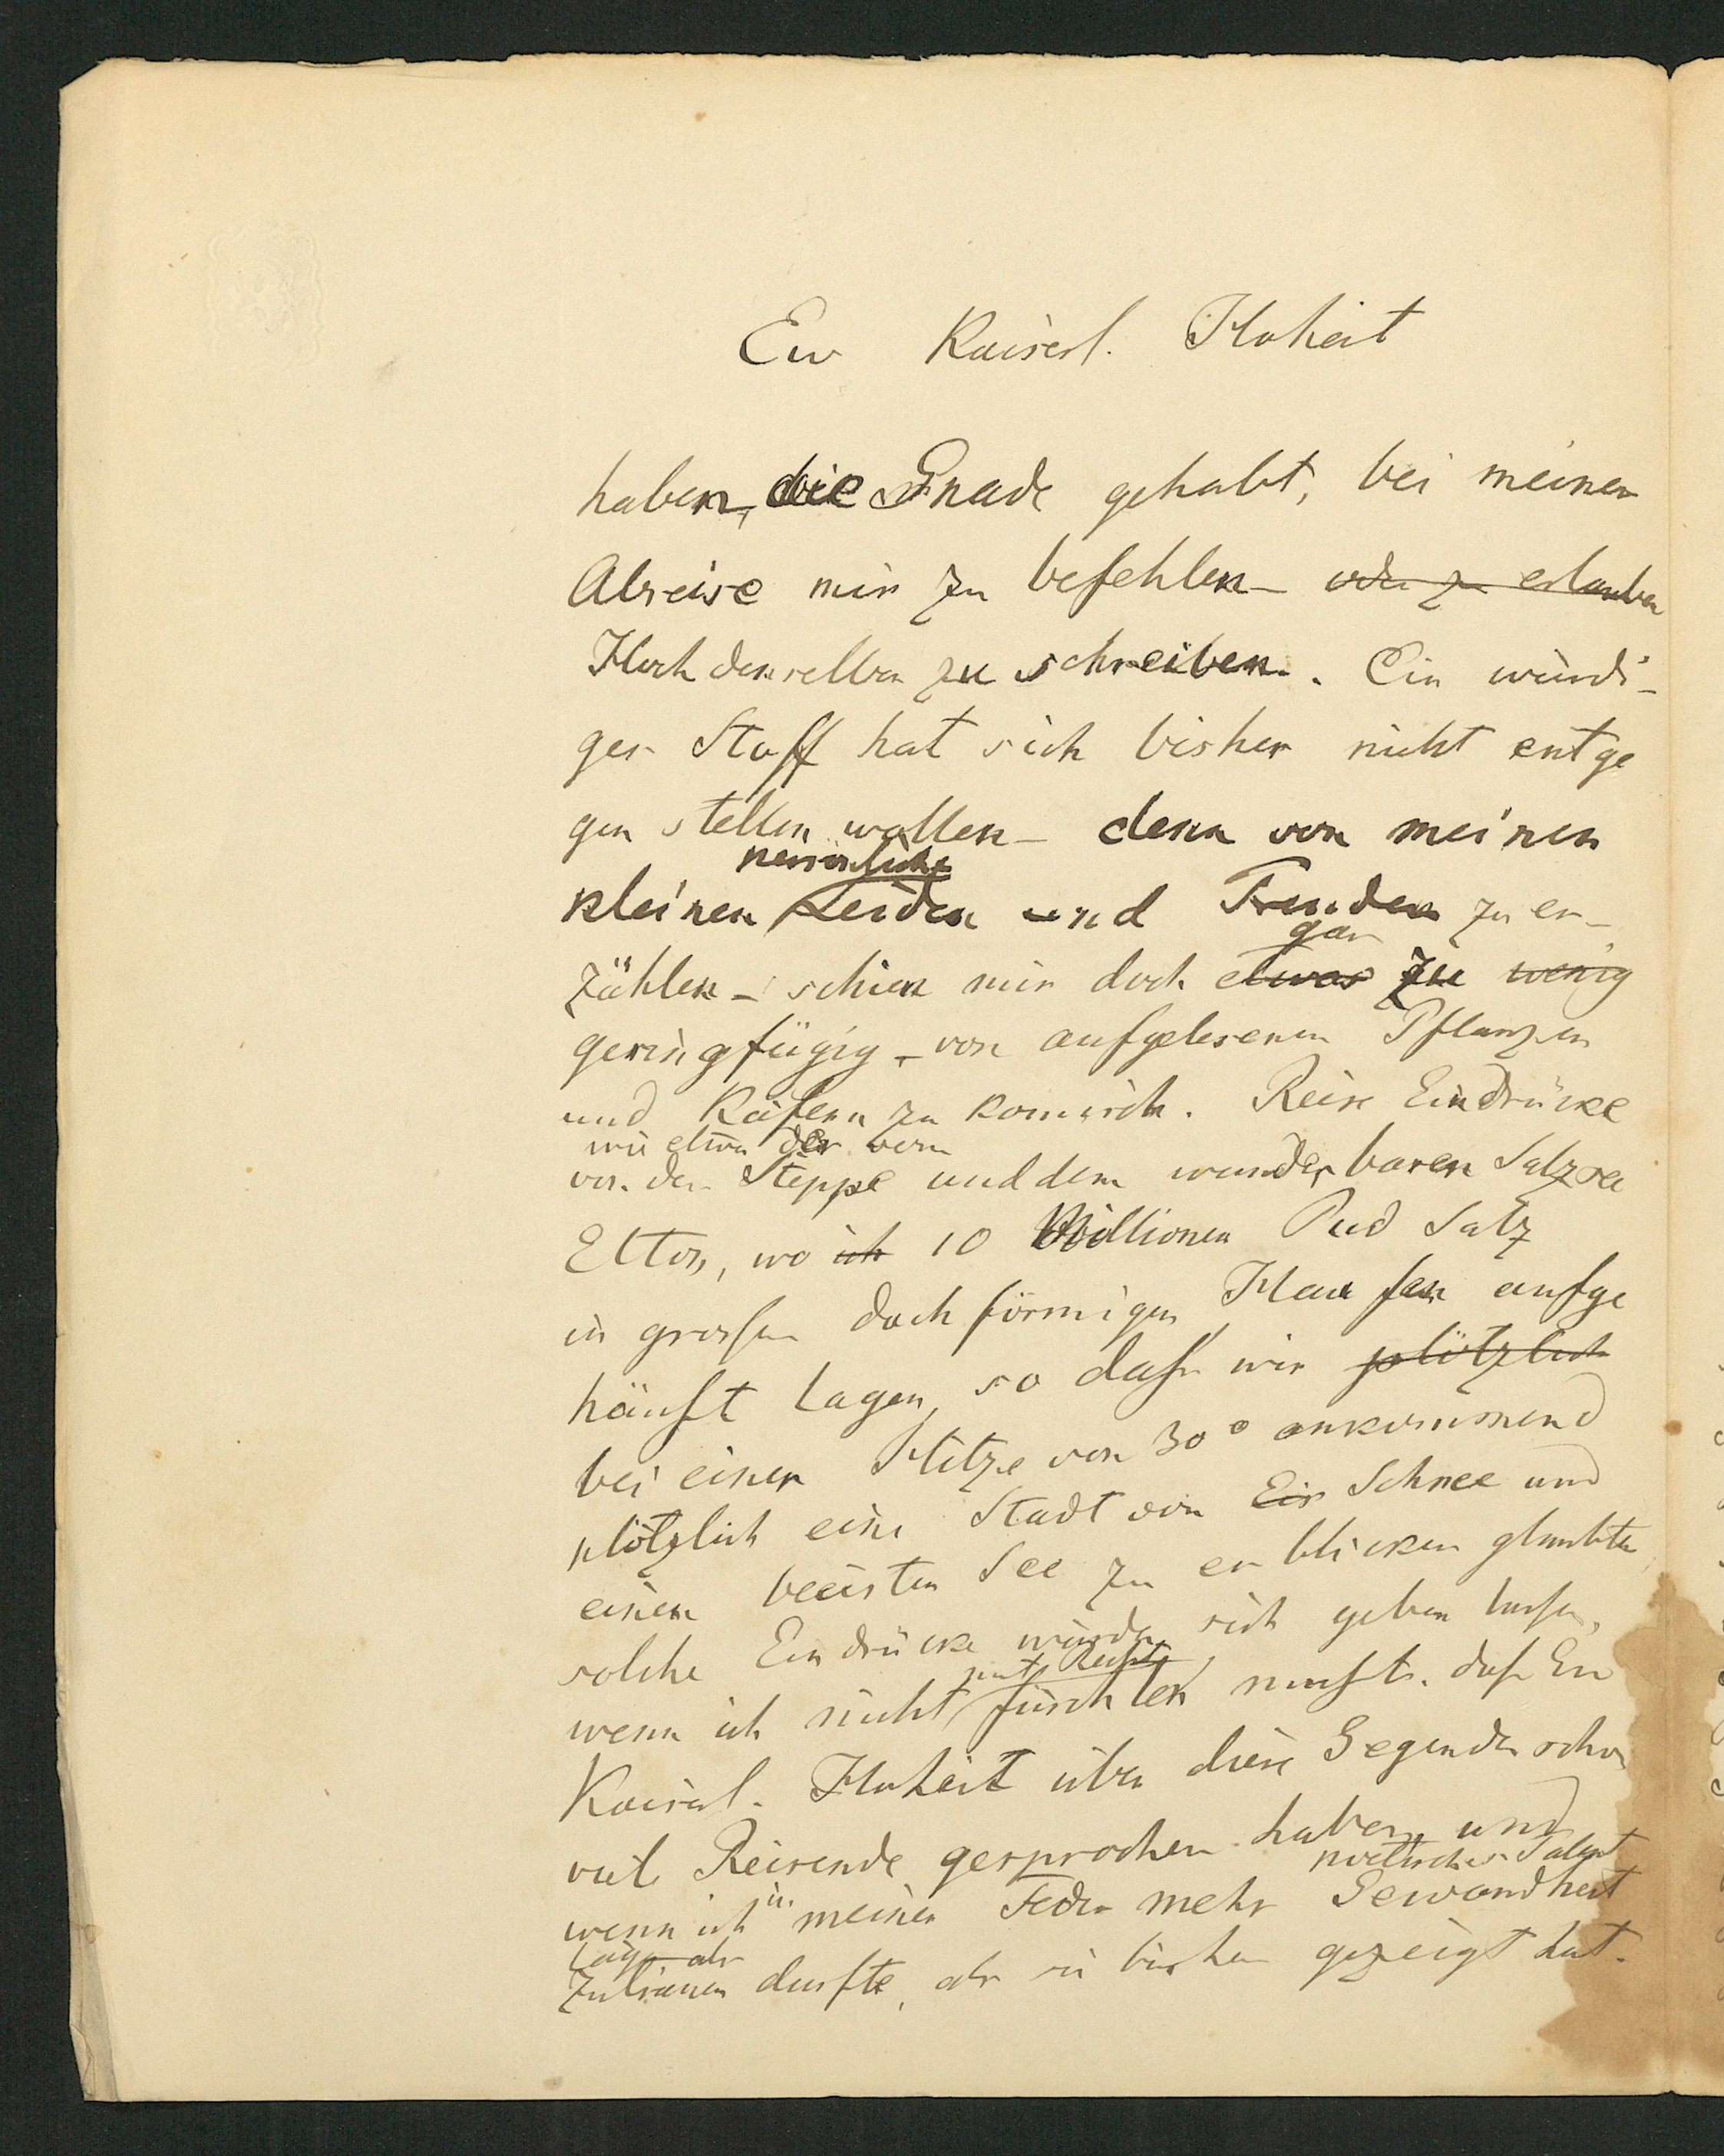 Ew Kaiserl. Hoheit
haben, die Gnade gehabt, bei meiner
Abreise mir zu befehlen – oder zu erlauben
Hochdenselben zu schreiben. Ein würdi-
ger Stoff hat sich bisher nicht entge
gen stellen wollen – denn von meinen
persönliche
kleinen Leiden und Freuden zu er-
gar
zählen – schien mir doch etwas zu wenig
geringfügig – von aufgelesenen Pflanzen
und Käfern zu komisch. Reise Eindrücke
wie etwa der vom
von der Steppe und dem wunderbaren Salzsee
Elton, wo ich 10 Millionen Pud Salz
in grossen dachförmigen Haufen aufge
häuft lagen, so dass wir plötzlich
bei einer Hitze von 30° ankommend
plötzlich eine Stadt von Eis Schnee und
einen beeisten See zu erblicken glaubten
solche Eindrücke würden sich geben lassen,
mit Recht
wenn ich nicht fürchten musste. dass Ew
Kaiserl. Hoheit über diese Gegenden schon
viele Reisende gesprochen haben und
poetisches Talent
wenn ich in meiner Feder mehr Gewandheit
zutrauen durfte, als sie bisher gezeigt hat.